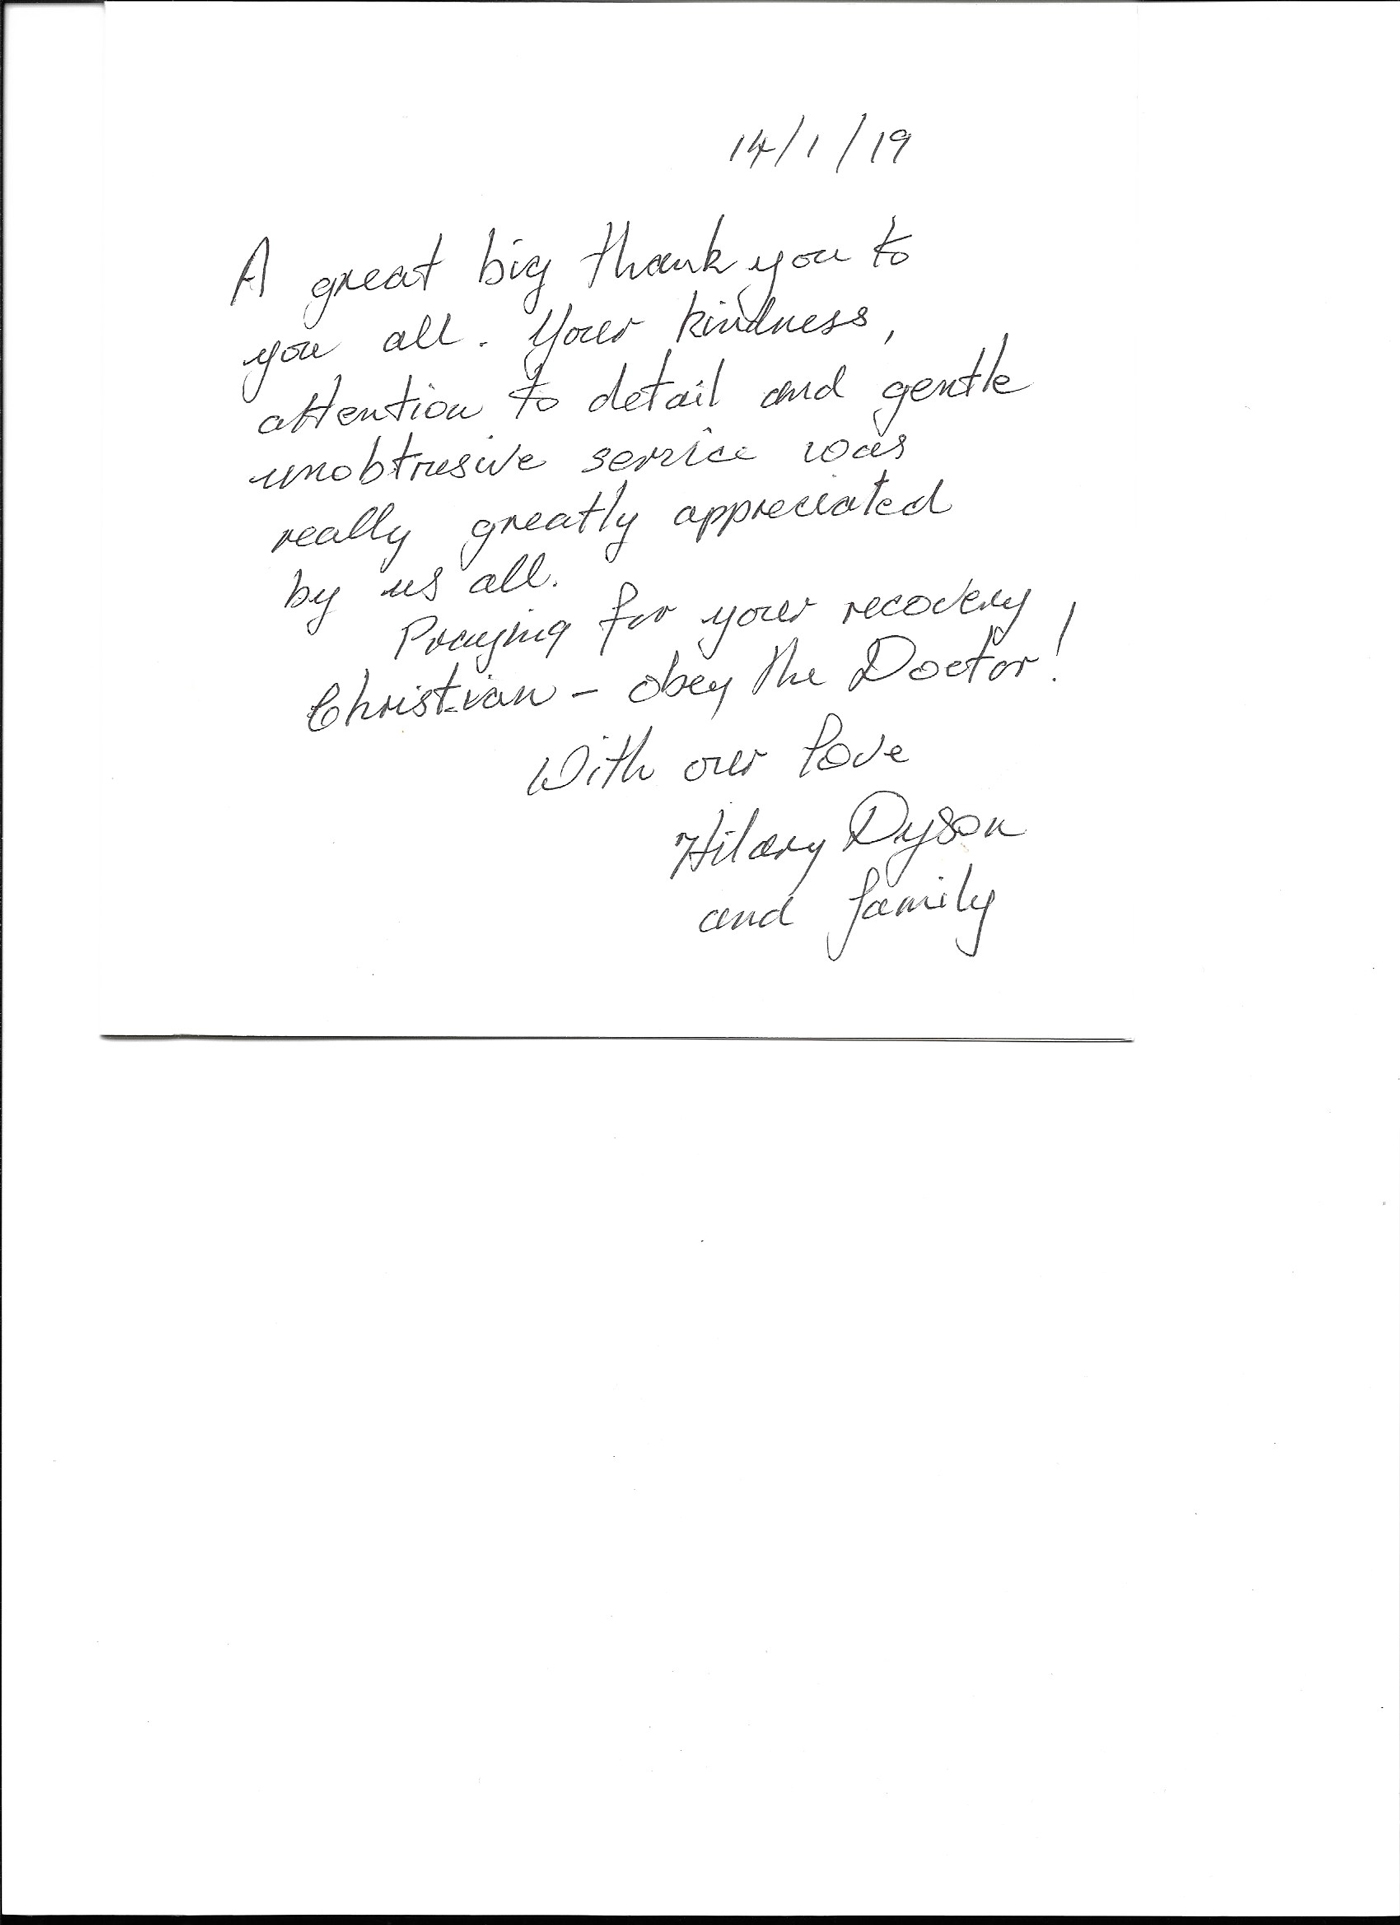 14/1/19
A great big thank you to
you all. Your kindness,
attention to detail and gentle
unobtrusive service was
really greatly appreciated
by us all.
Praying for your recovery
Christian - obey the Doctor!
With our love
Hilary Dyson
and family